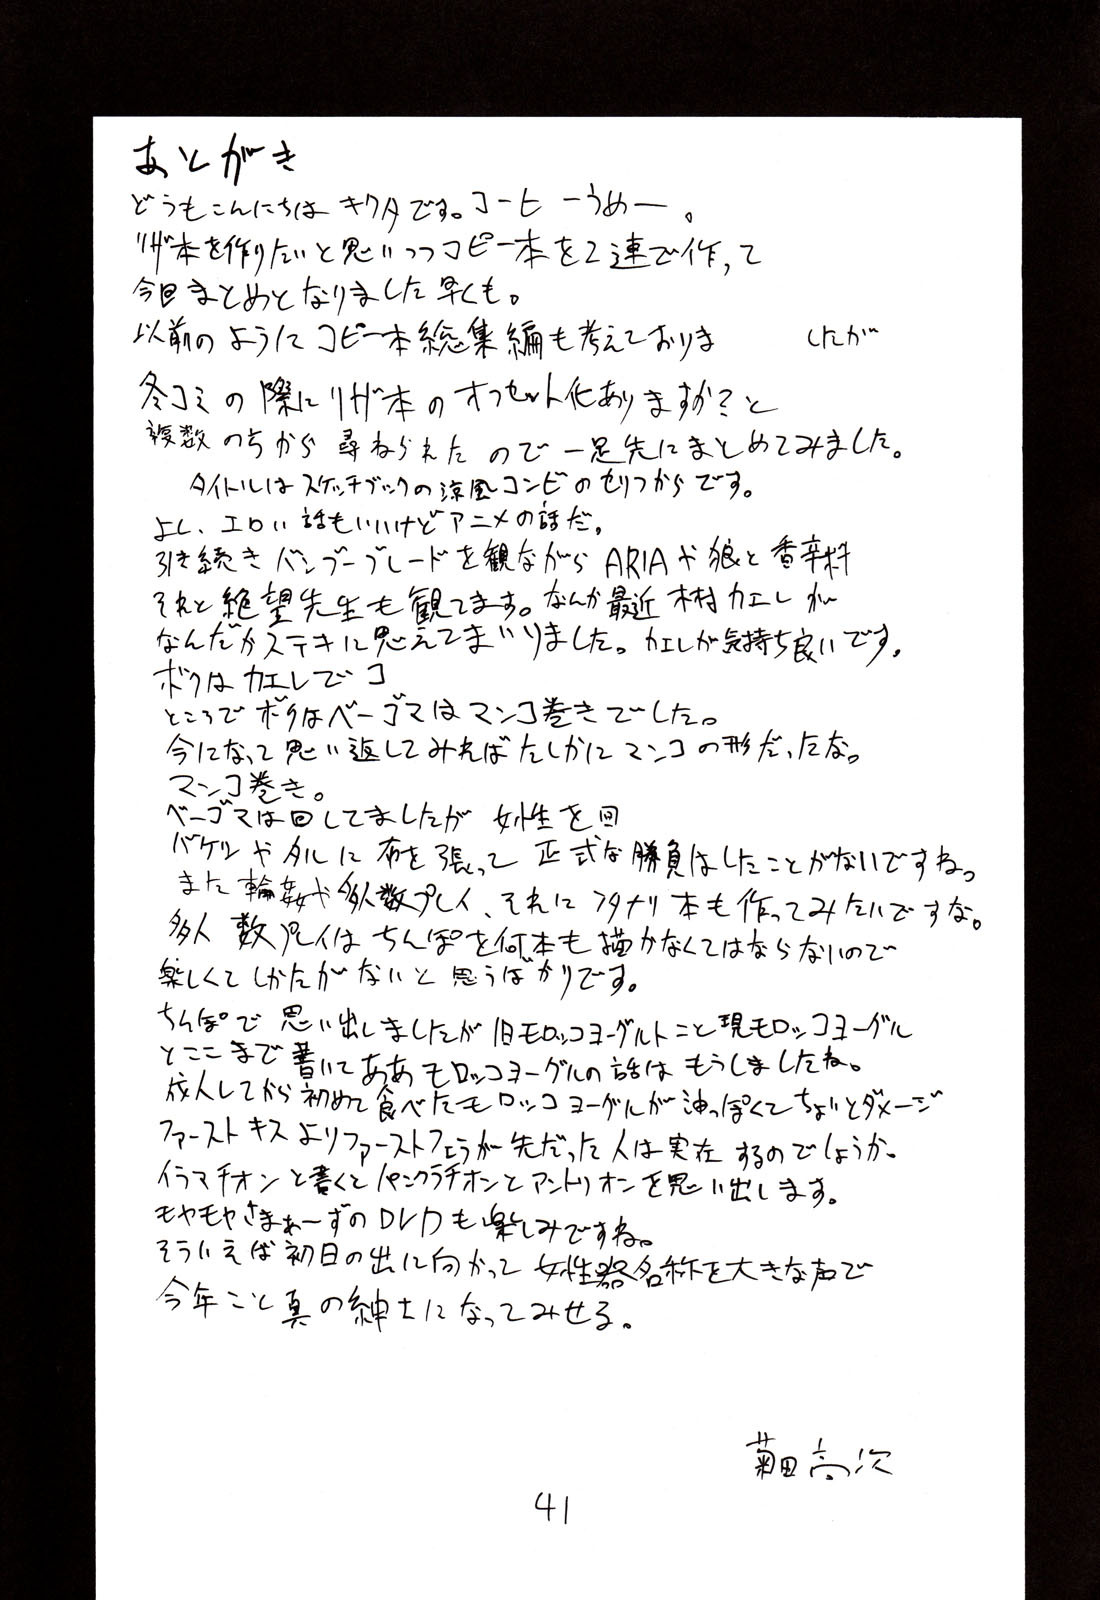 あとがき
どうもこんにちは キクタです。コーヒーうめー。
リザ本を作りたいと思いつつコピー本を2連で作って
今回まとめとなりました早くも。
以前のようにコピー本総集編も考えておりま したが
冬コミの際にリザ本のオフセット化ありますか?と
複数のちから尋ねられたので一足先にまとめてみました。
タイトルはスケッチブックの涼風コンビのセリフからです。
よし、エロい話もいいけどアニメの話だ。
引き続きバンブーブレードを観ながらARIAや狼と香辛料
それと絶望先生も観てます。なんか最近木村カエレが
なんだかステキに思えてまいりました。カエレが気持ち良いです。
ボクはカエレでコ
ところでボクはベーゴマはマンコ巻きでした。
今になって思い返してみればたしかにマンコの形だったな。
マンコ巻き。
ベーゴマは回してましたが 女性を回
バケツやタルに布を張って正式な勝負はしたことがないですね。
また輪姦や多人数プレイ、それにフタナリ本も作ってみたいですな。
多人数プレイはちんぽを何本も描かなくてはならないので
楽しくてしかたがないと思うばかりです。
ちんぽで思い出しましたが旧モロッコヨーグルトこと現モロッコヨーグル
とここまで書いてああモロッコヨーグルの話はもうしましたね。
成人してから初めて食べたモロッコヨーグルが油っぽくてちょいとダメージ
ファーストキスよりファーストフェラが先だった人は実在するのでしょうか。
イラマチオンと書くとパンクラチオンとアントリオンを思い出します。
モヤモヤさまぁーずのDVDも楽しみですね。
そういえば初日の出に向かって女性器名称を大きな声で
今年こそ真の紳士になってみせる。
菊田高次
41